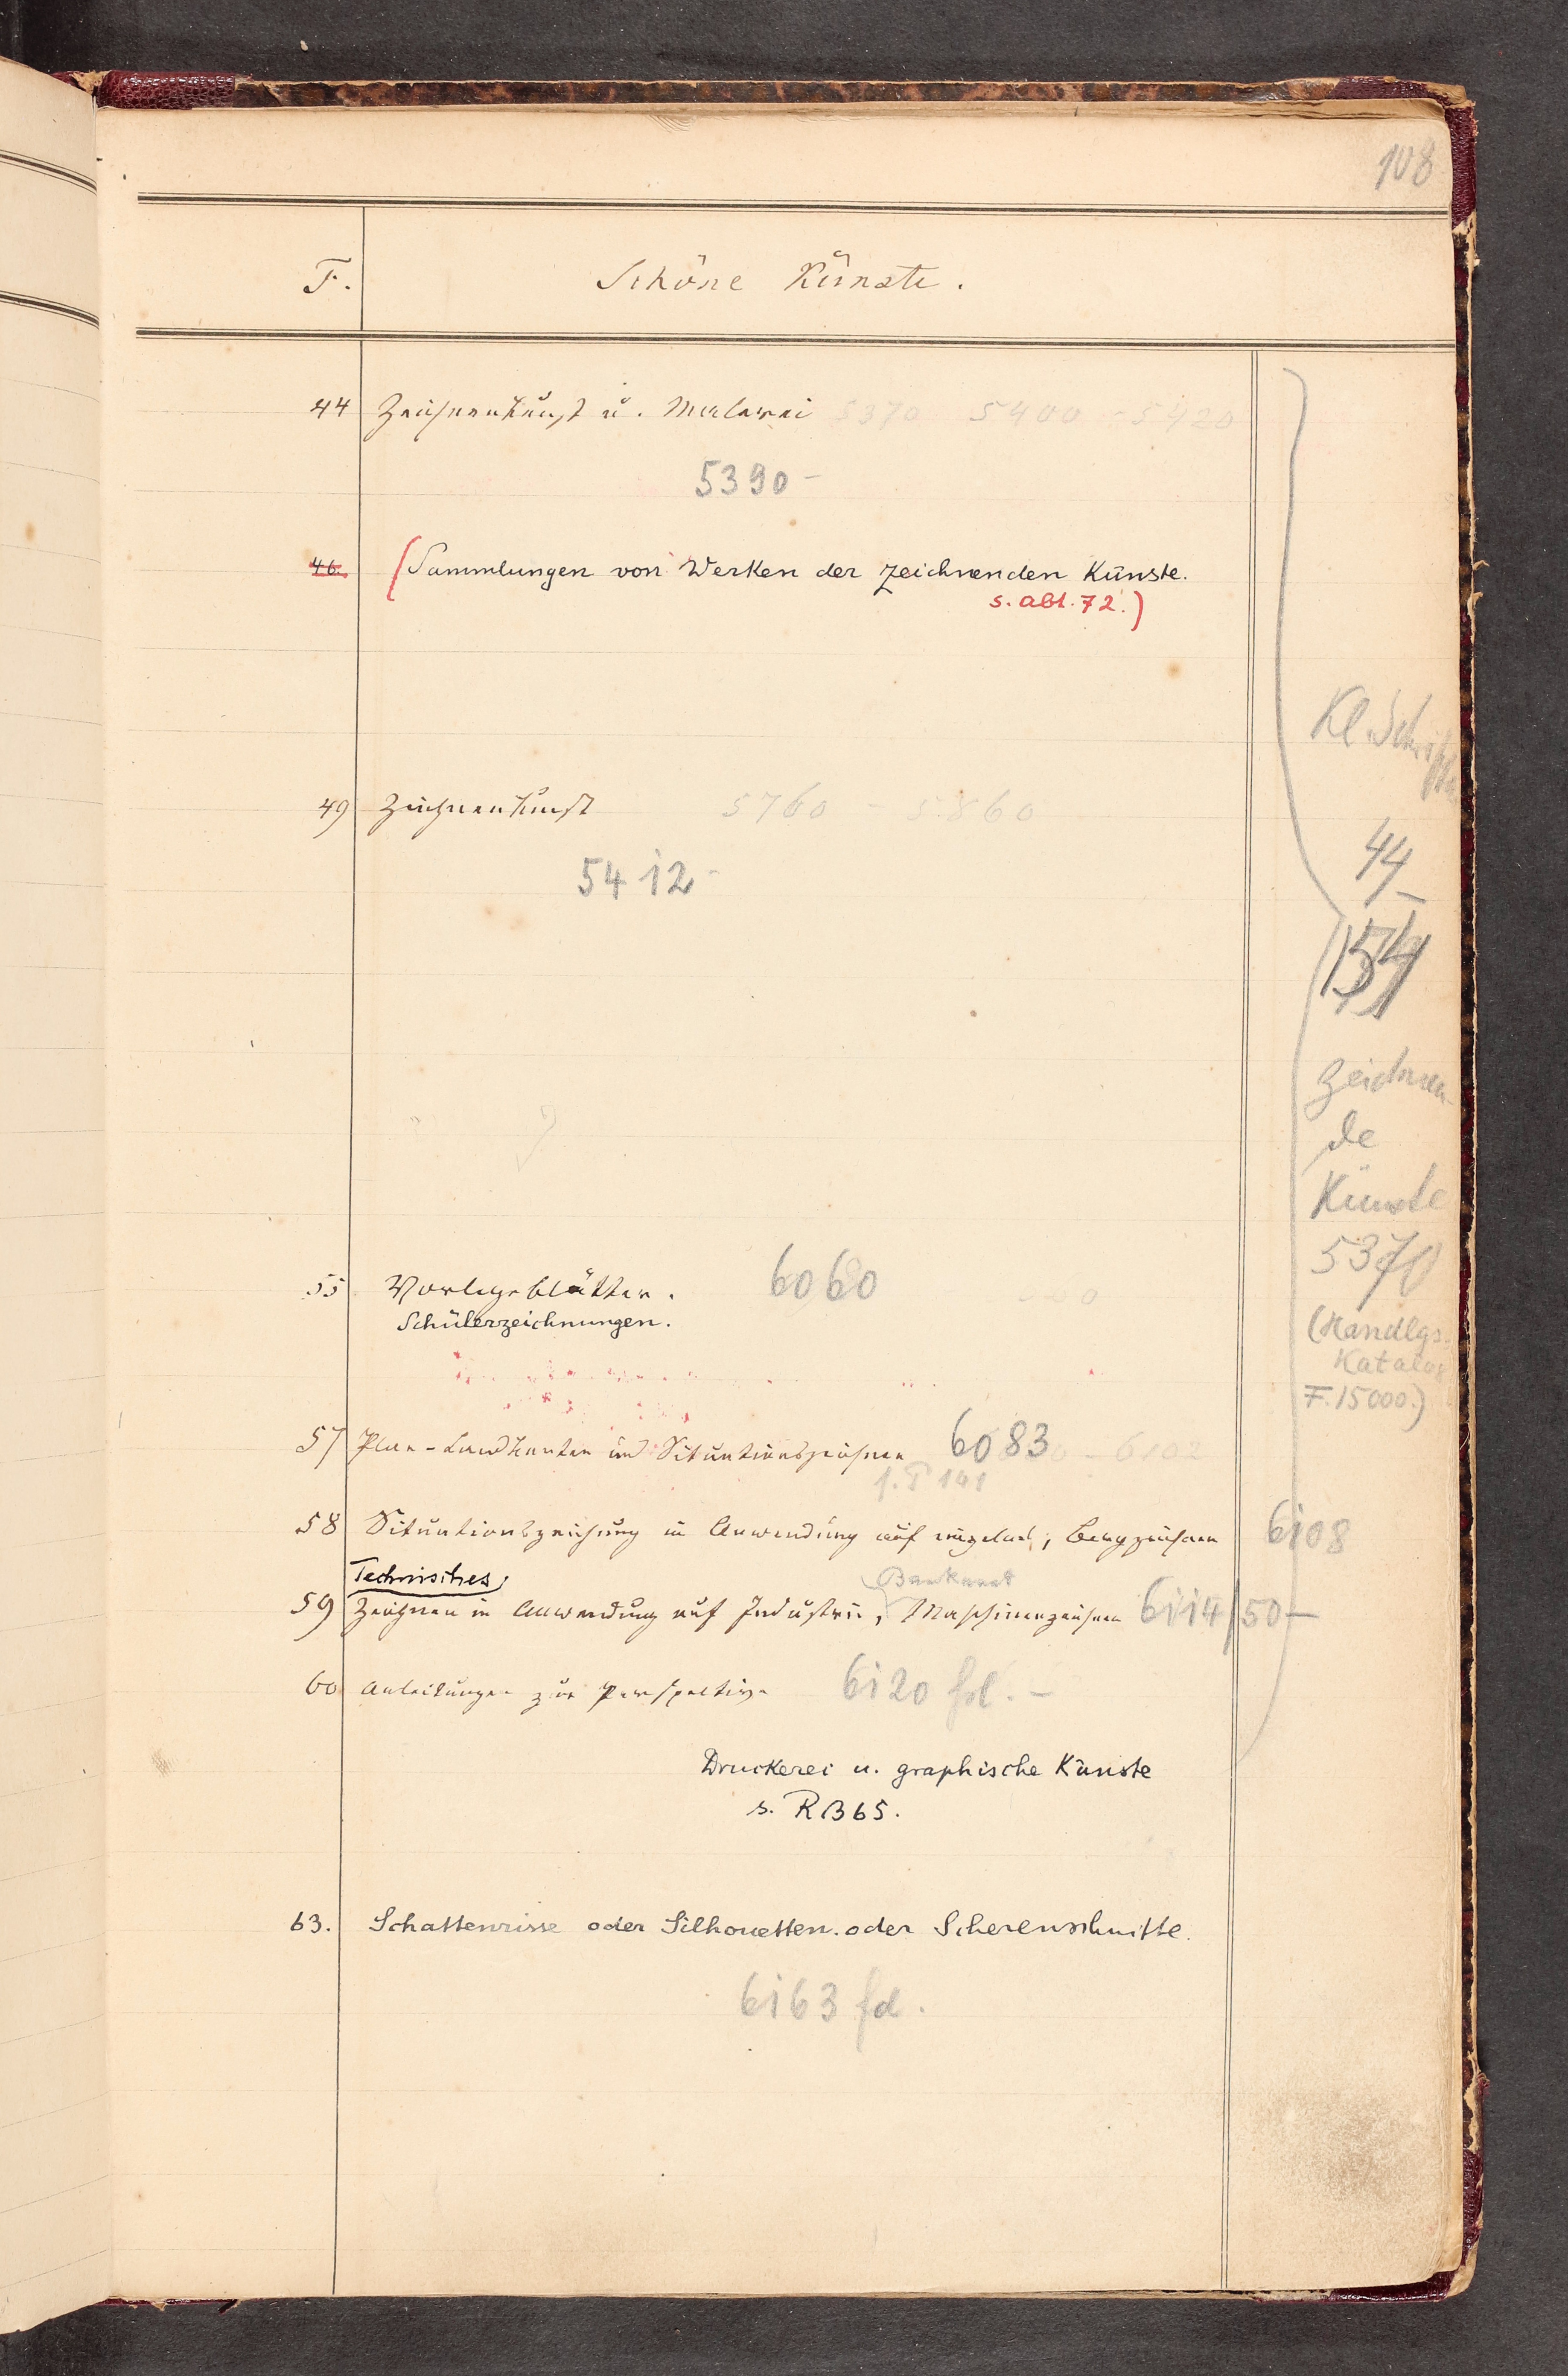 108
F. Schöne Künste.
44 Zeichenkunst u. Malerei 5370 5400 - 5420
5390 -
46. (Sammlungen von Werken der zeichnenden Künste.
s. Abt. 72.)
49 Zeichenkunst 5760 - 5860
5412 -
55 Vorlegeblätter. 6060
Schülerzeichnungen.
57 Plan- Landkarten und Situationszeichnen 6083 - 6102
s. T 141
58 Situationszeichnung in Anwendung auf ; Bergzeichnen 6108
Technisches
Baukunst
59 Zeichnen in Anwendung auf Industrie, Maschinenzeichnen 6114/50 -
60 Anleitungen zur Perspektive 6120 fol. -
Druckerei u. graphische Künste
s. R B 65.
63. Schattenrisse oder Silhouetten. oder Scherenschnitte.
6163 fd.
Kl. Schriften
44 -
154
Zeichnen-
de
Künste
5370
(Handlgs.
Katalog
F. 15000.)